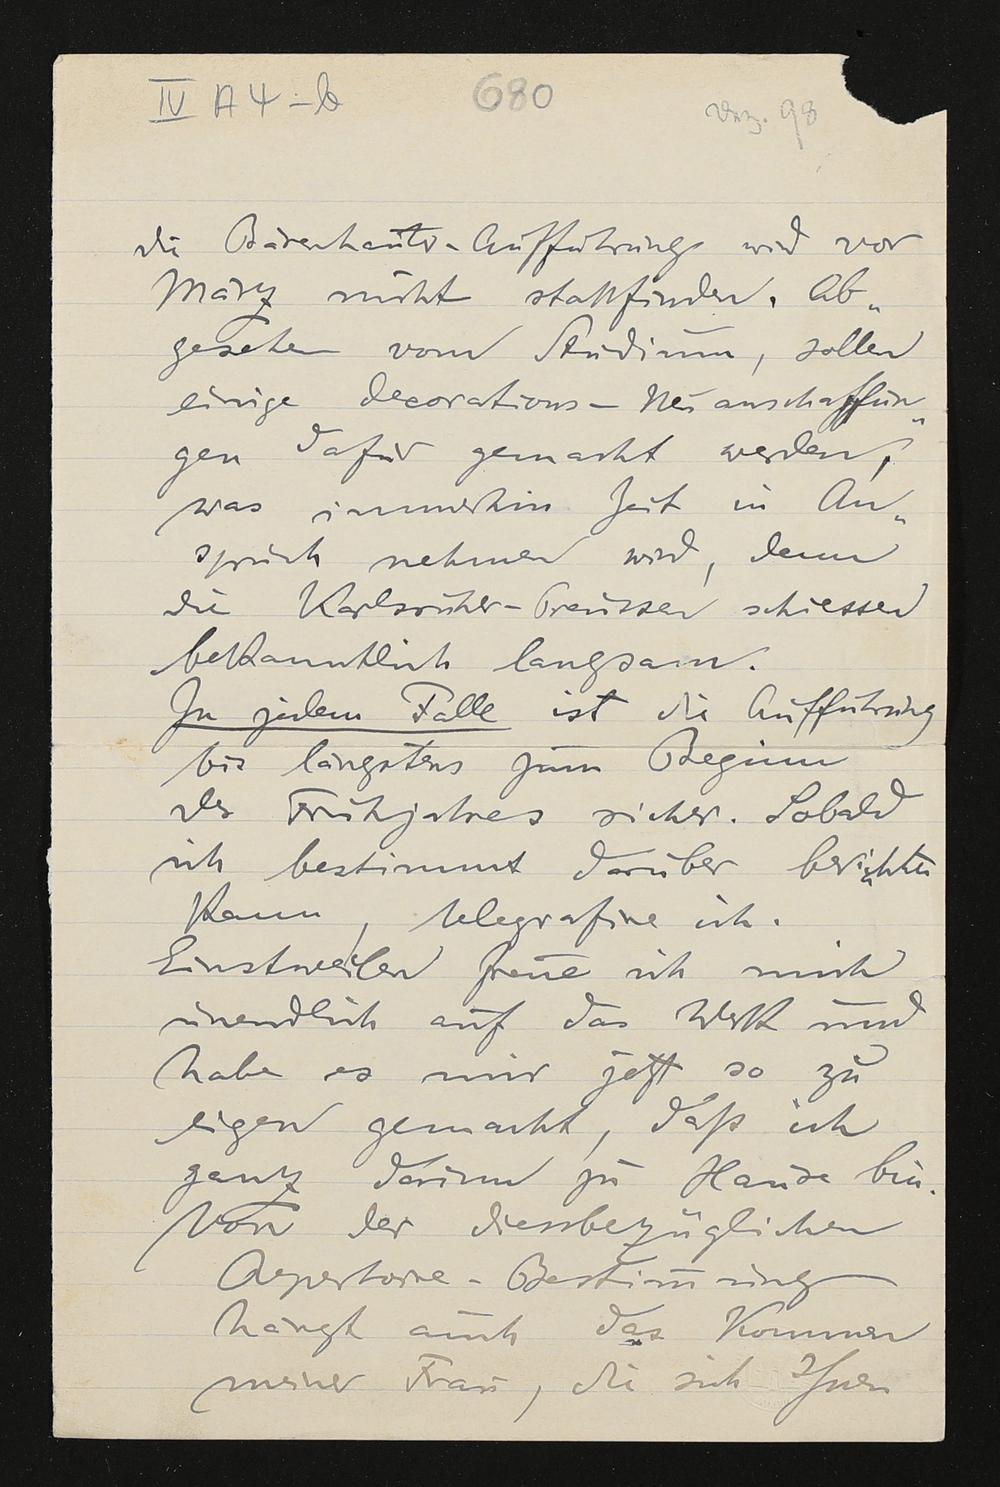 IV A 4 - b
680
Dez. 98
die Bärenhäuter-Aufführung wird vor
März nicht stattfinden. Ab„
gesehen vom Studium, sollen
einige Decorations-Neuanschaffun„
gen dafür gemacht werden,
was immerhin Zeit in An„
spruch nehmen wird, denn
die Karlsruher-Preussen schiessen
bekanntlich langsam.
In jedem Falle ist die Aufführung
bis längstens zum Beginn
des Frühjahres sicher. Sobald
ich bestimmt darüber berichten
kann, telegrafire ich.
Einstweilen freue ich mich
unendlich auf das Werk und
habe es mir jetzt so zu
eigen gemacht, daß ich
ganz darinn zu Hause bin.
Von der diessbezüglichen
Repertoire-Bestim̅ung
hängt auch das Kommen
meiner Frau, die sich Ihnen